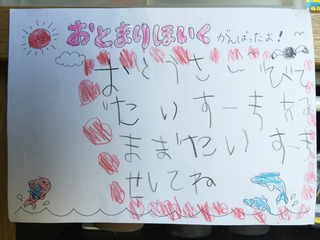 おとまりほいく がんばったよ!
おとうさん びて
だいすーき
まま だいすき
せしてね